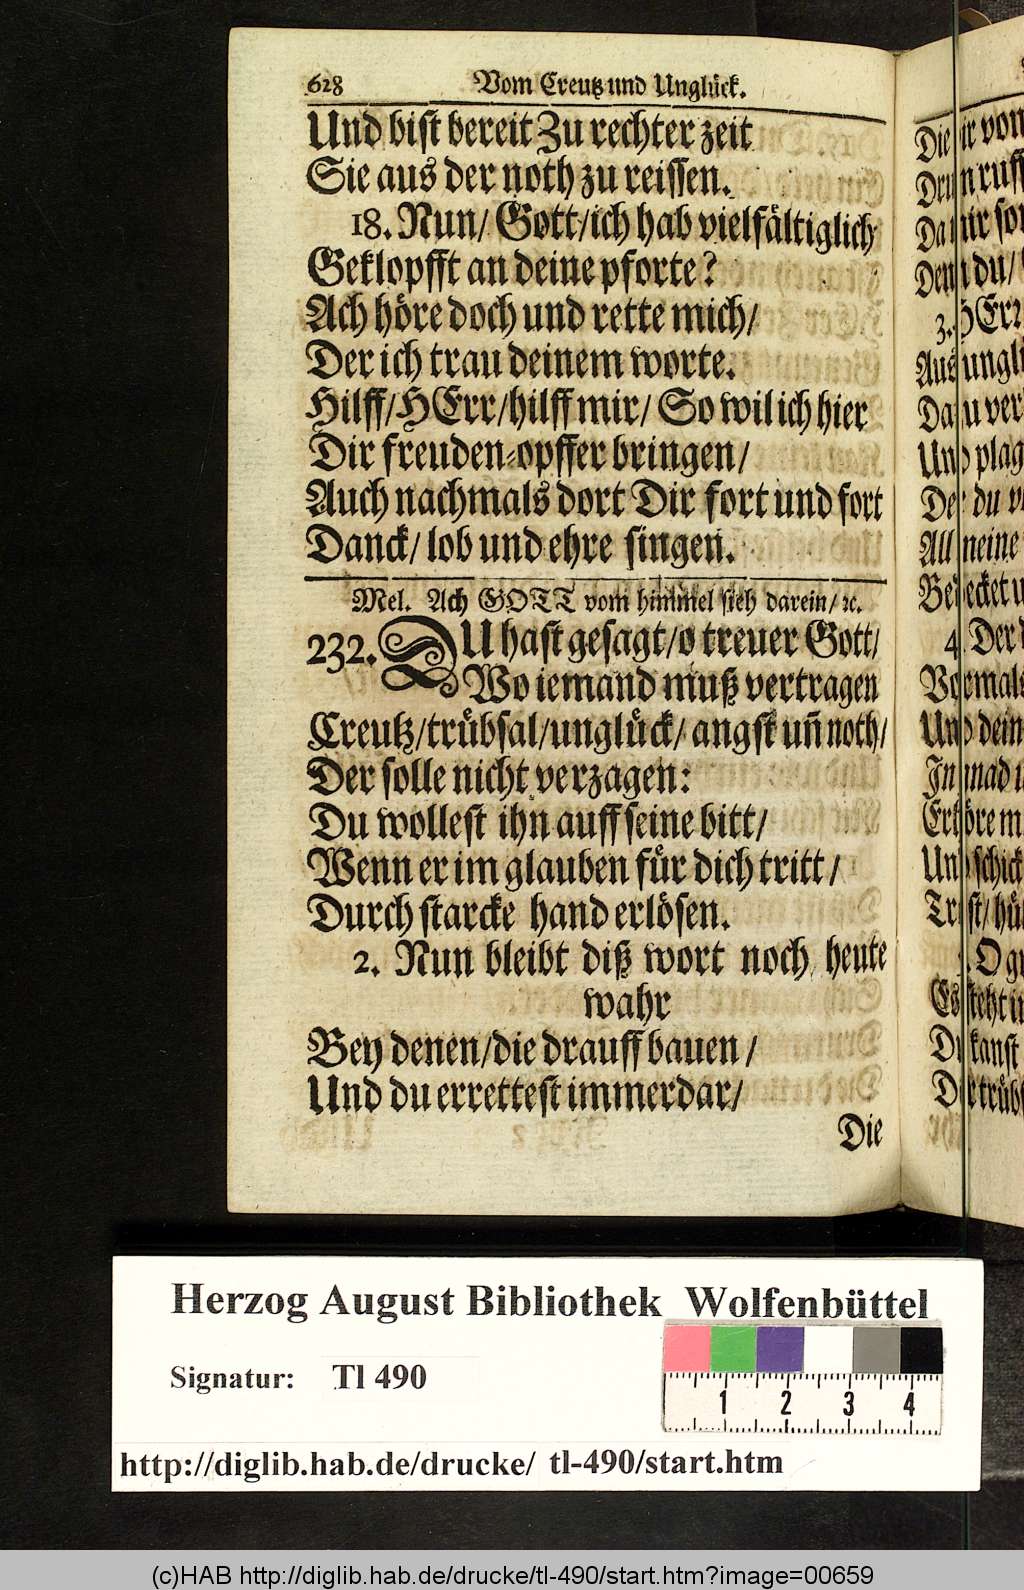 628 Vom Creutz und Unglück.
Und bist bereit Zu rechter zeit
Sie aus der noth zu reissen.
18. Nun/ Gott/ich hab vielfältiglich
Geklopfft an deine pforte?
Ach höre doch und rette mich/
Der ich trau deinem worte.
Hilff/HErr/hilff mir/ So wil ich hier
Dir freuden-opffer bringen/
Auch nachmals dort Dir fort und fort
Danck/ lob und ehre singen.
Mel. Ach GOTT vom himmel sieh darein/ ꝛc.
232. DU hast gesagt/o treuer Gott/
Wo iemand muß vertragen
Creutz/trübsal/unglück/ angst un̄ noth/
Der solle nicht verzagen:
Du wollest ihn auff seine bitt/
Wenn er im glauben für dich tritt/
Durch starcke hand erlösen.
2. Nun bleibt diß wort noch heute
wahr
Bey denen/die drauff bauen/
Und du errettest immerdar/
Die
Die
3. HErr
4. Der
Herzog August Bibliothek Wolfenbüttel
Signatur: Tl 490
1 2 3 4
http://diglib.hab.de/drucke/ tl-490/start.htm
(c)HAB http://diglib.hab.de/drucke/tl-490/start.htm?image=00659